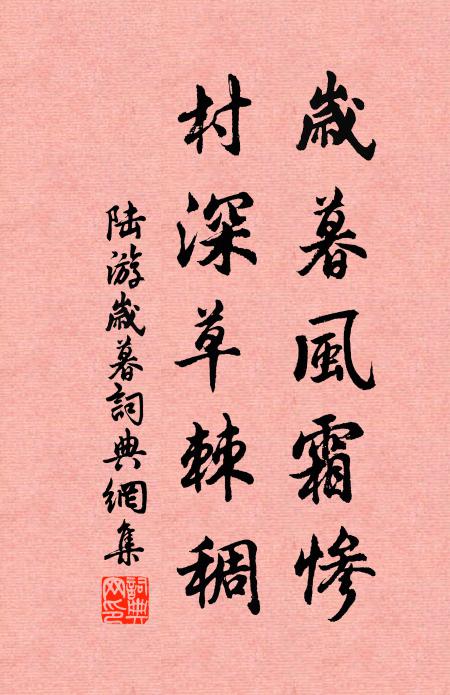 歲暮風霜慘
村深草棘稠
陆游歲暮詞典網集
詞典網印